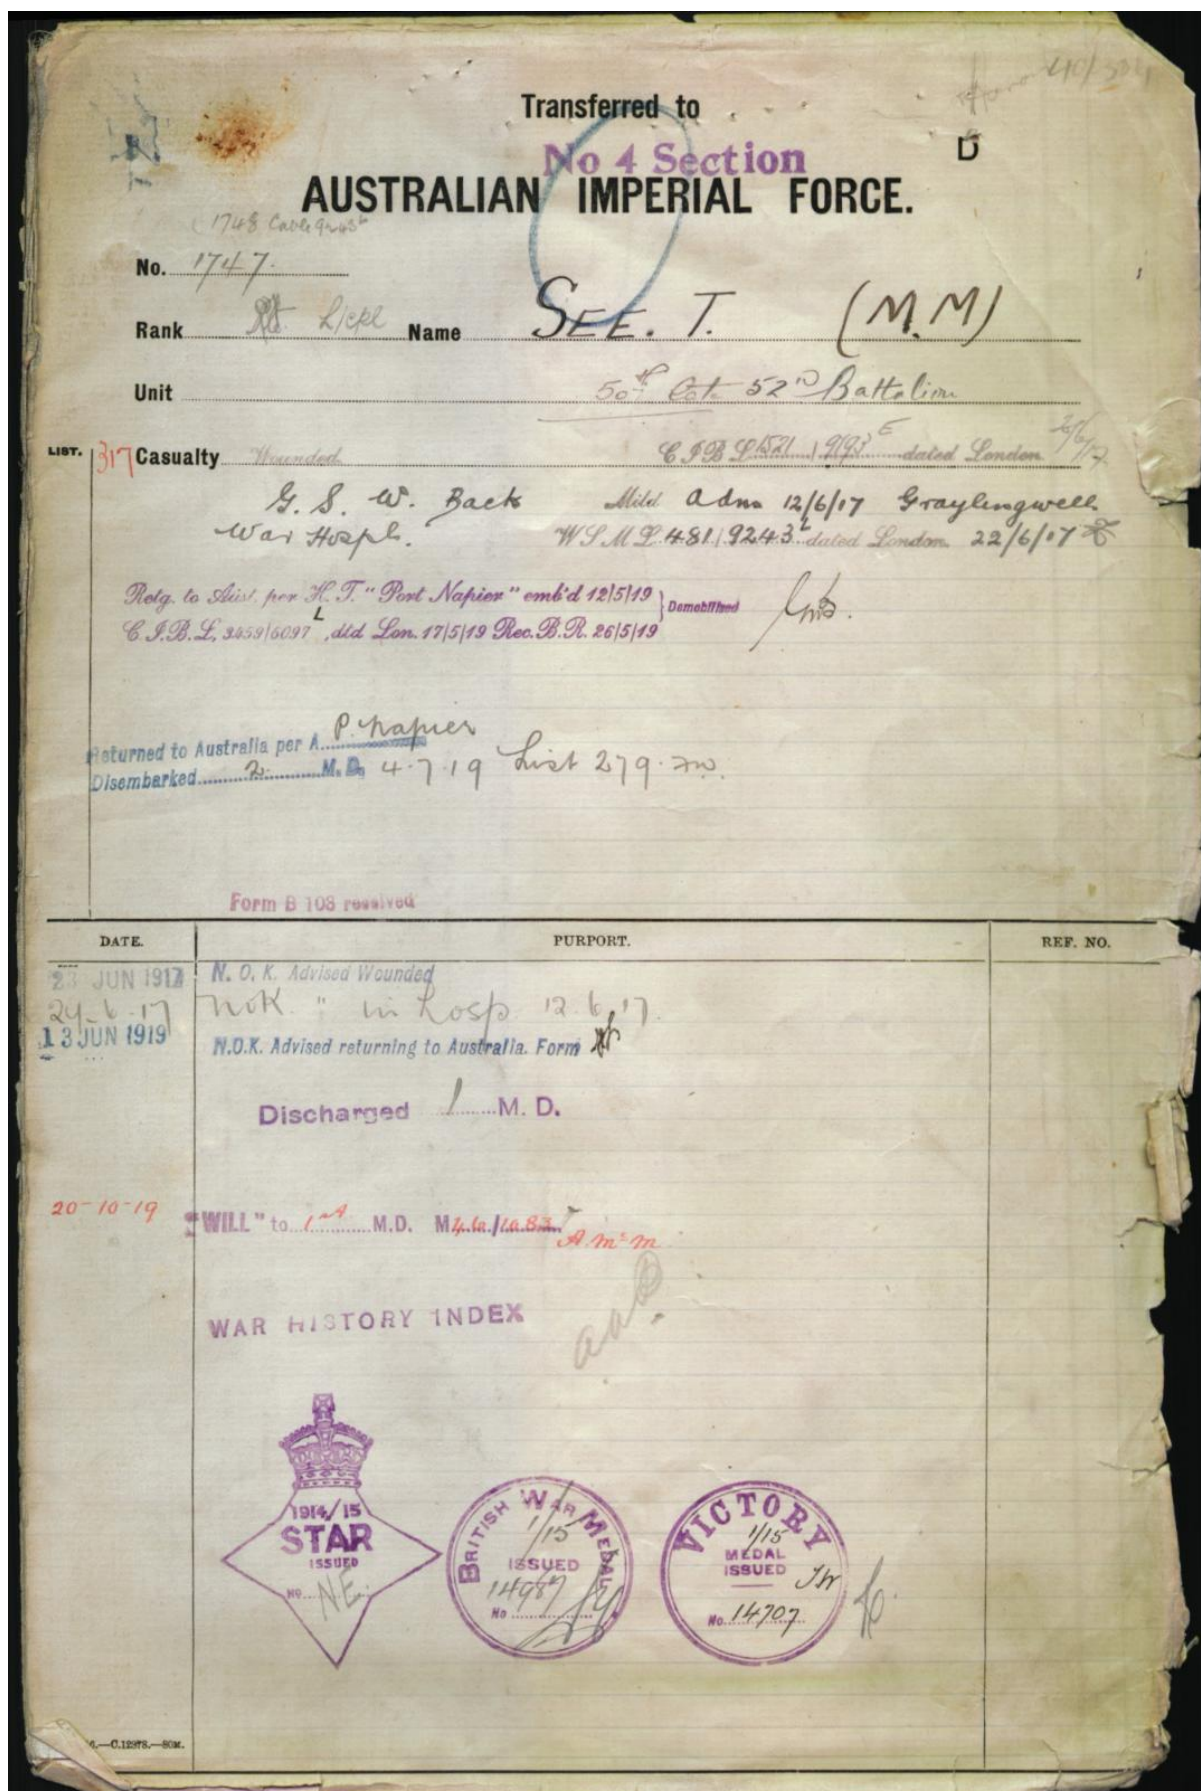 Transferred to
No 4 Section
D
AUSTRALIAN IMPERIAL FORCE.
1748 Cable 9243L
No. 1747.
Rank L/Cpl Name SEE. T. (M.M)
Unit 50th late 52nd Battalion
LIST. 317 Casualty Wounded C I B L 1521 / 9193 E dated London
G. S. W. Back Mild adm 12/6/17 Graylingwell
War Hospl. W S M L 481 / 9243 L dated London 22/6/17
Retg. to Aust. per H. T. "Port Napier" emb'd 12/5/19 } Demobilised
C. I. B. L, 3459/6097 L, dtd Lon. 17/5/19 Rec. B. R. 26/5/19
Returned to Australia per A. P. Napier
Disembarked 2 M. D. 4.7.19 List 279.
Form B 103 received
DATE. PURPORT. REF. NO.
23 JUN 1917 N. O. K. Advised Wounded
29-6-17 NOK " in hosp 12.6.17.
13 JUN 1919 N.O.K. Advised returning to Australia. Form
Discharged 1 M. D.
20-10-19 "WILL" to 1st M.D.
WAR HISTORY INDEX
1914/15
STAR
ISSUED
No. NE.
BRITISH WAR MEDAL
1/15
ISSUED
14987
No
VICTORY
1/15
MEDAL
ISSUED
No. 14707
C.12378.—80M.